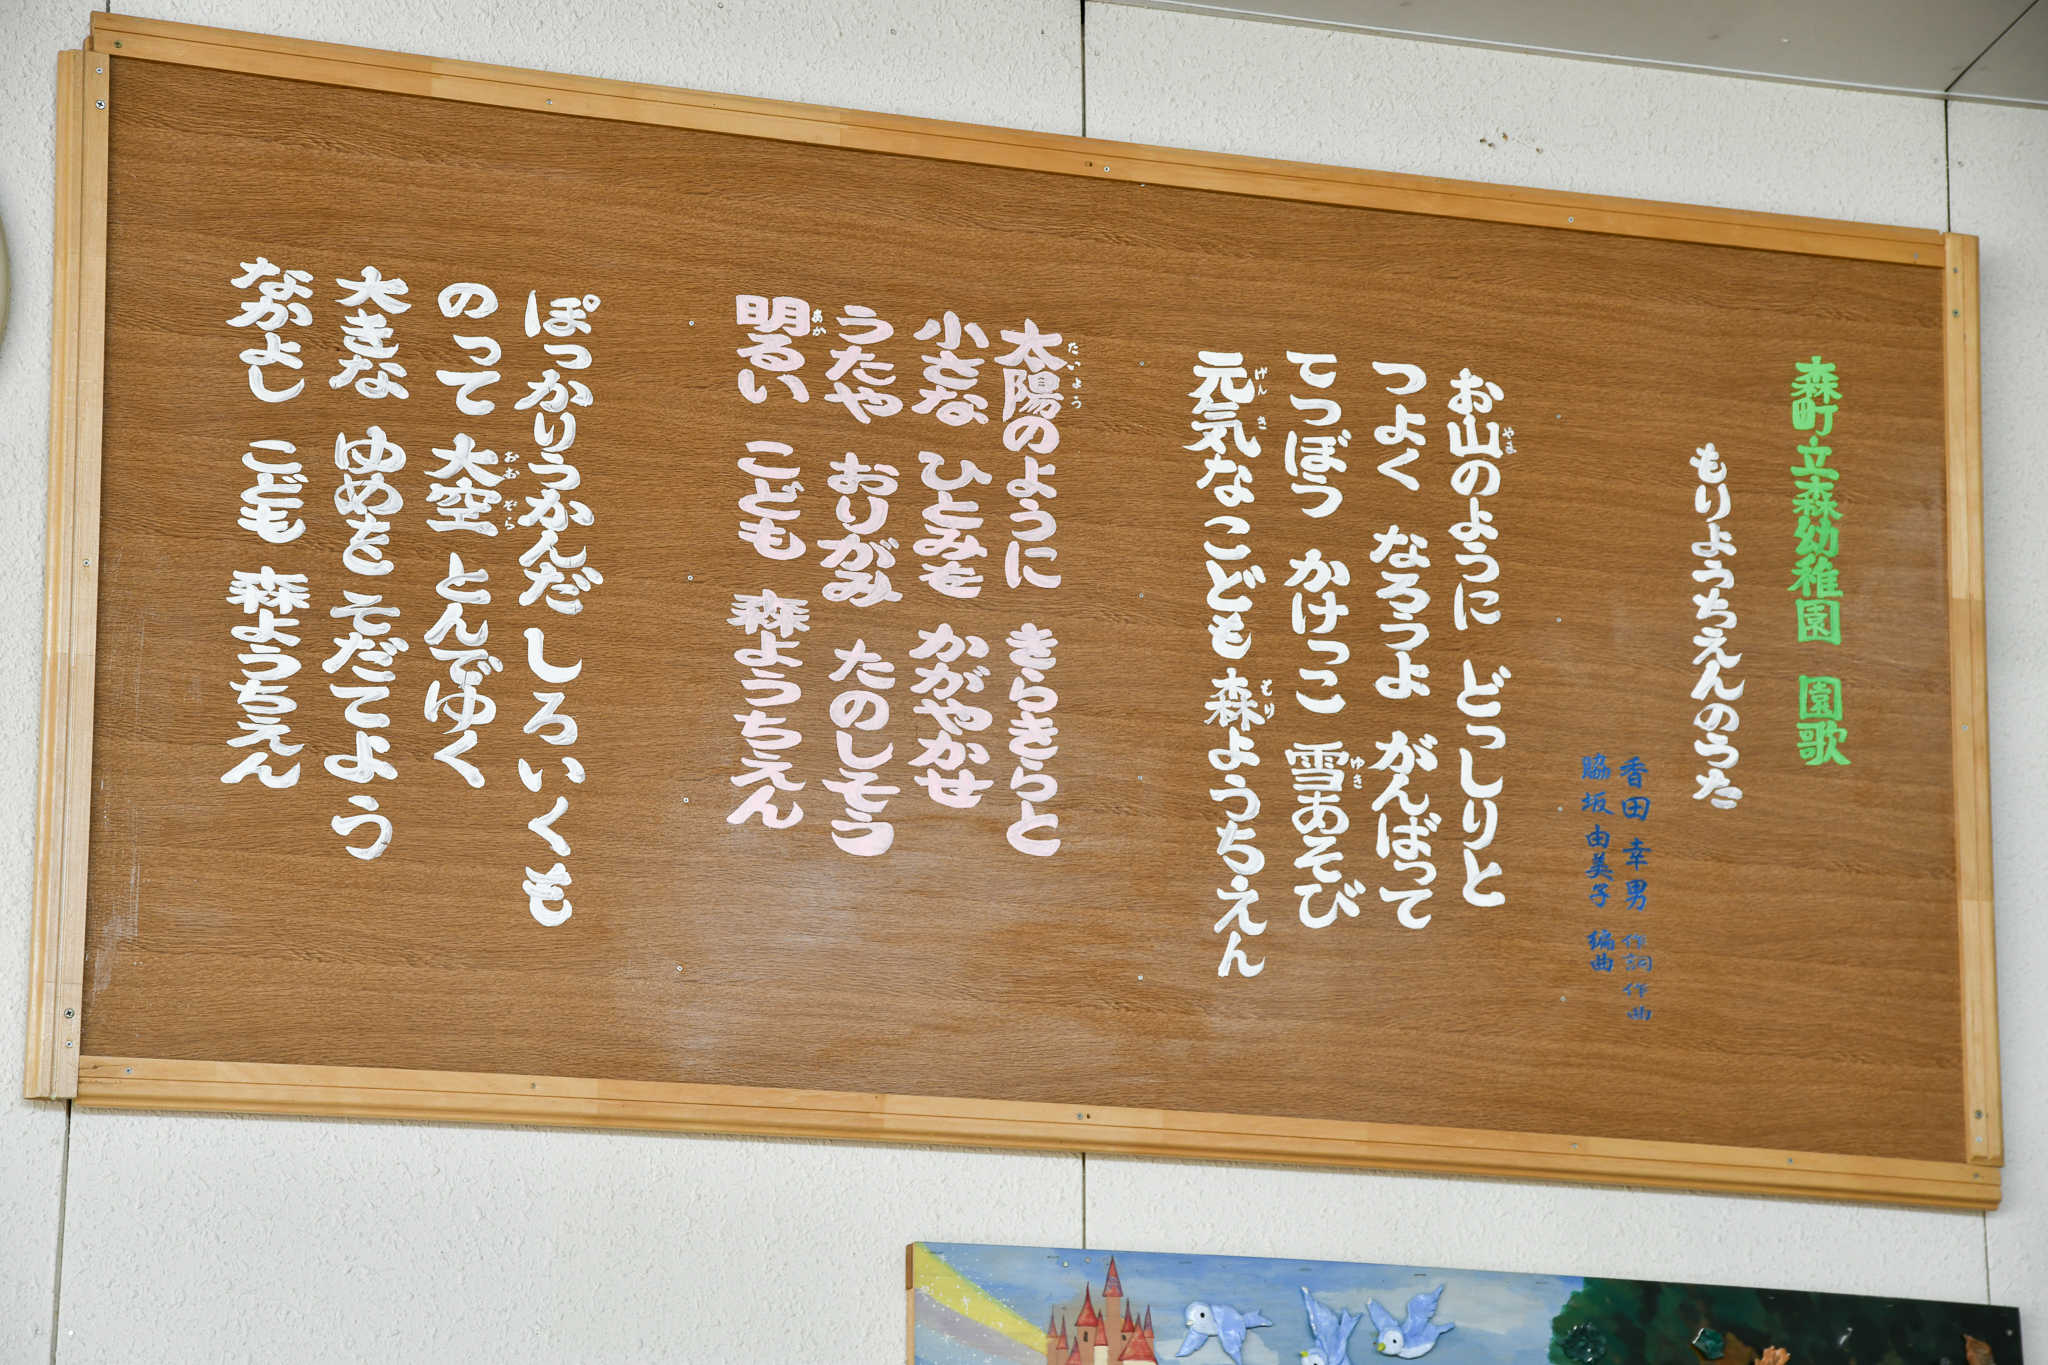 森町立森幼稚園　園歌
もりようちえんのうた
香田幸男 作詞作曲
脇坂由美子 編曲
お山のように　どっしりと
つよく　なろうよ　がんばって
てつぼう　かけっこ　雪あそび
元気なこども　森ようちえん
太陽のように　きらきらと
小さな　ひとみを　かがやかせ
うたや　おりがみ　たのしそう
明るい　こども　森ようちえん
ぽっかりうかんだ　しろいくも
のって　大空　とんでゆく
大きな　ゆめを　そだてよう
なかよし　こども　森ようちえん